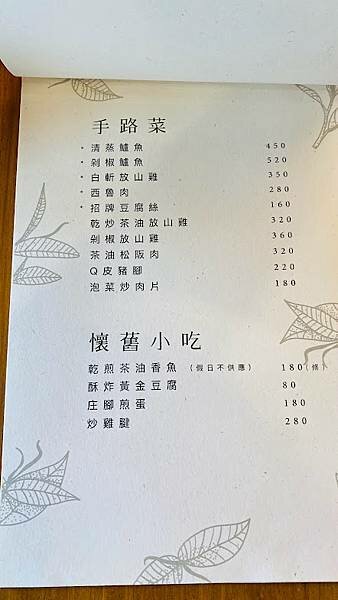 手路菜
• 清蒸鱸魚 450
• 剁椒鱸魚 520
• 白斬放山雞 350
• 西魯肉 280
• 招牌豆腐絲 160
乾炒茶油放山雞 320
剁椒放山雞 360
茶油松阪肉 320
Q皮豬腳 220
泡菜炒肉片 180
懷舊小吃
乾煎茶油香魚 (假日不供應) 180(條)
酥炸黃金豆腐 80
庄腳煎蛋 180
炒雞腱 280